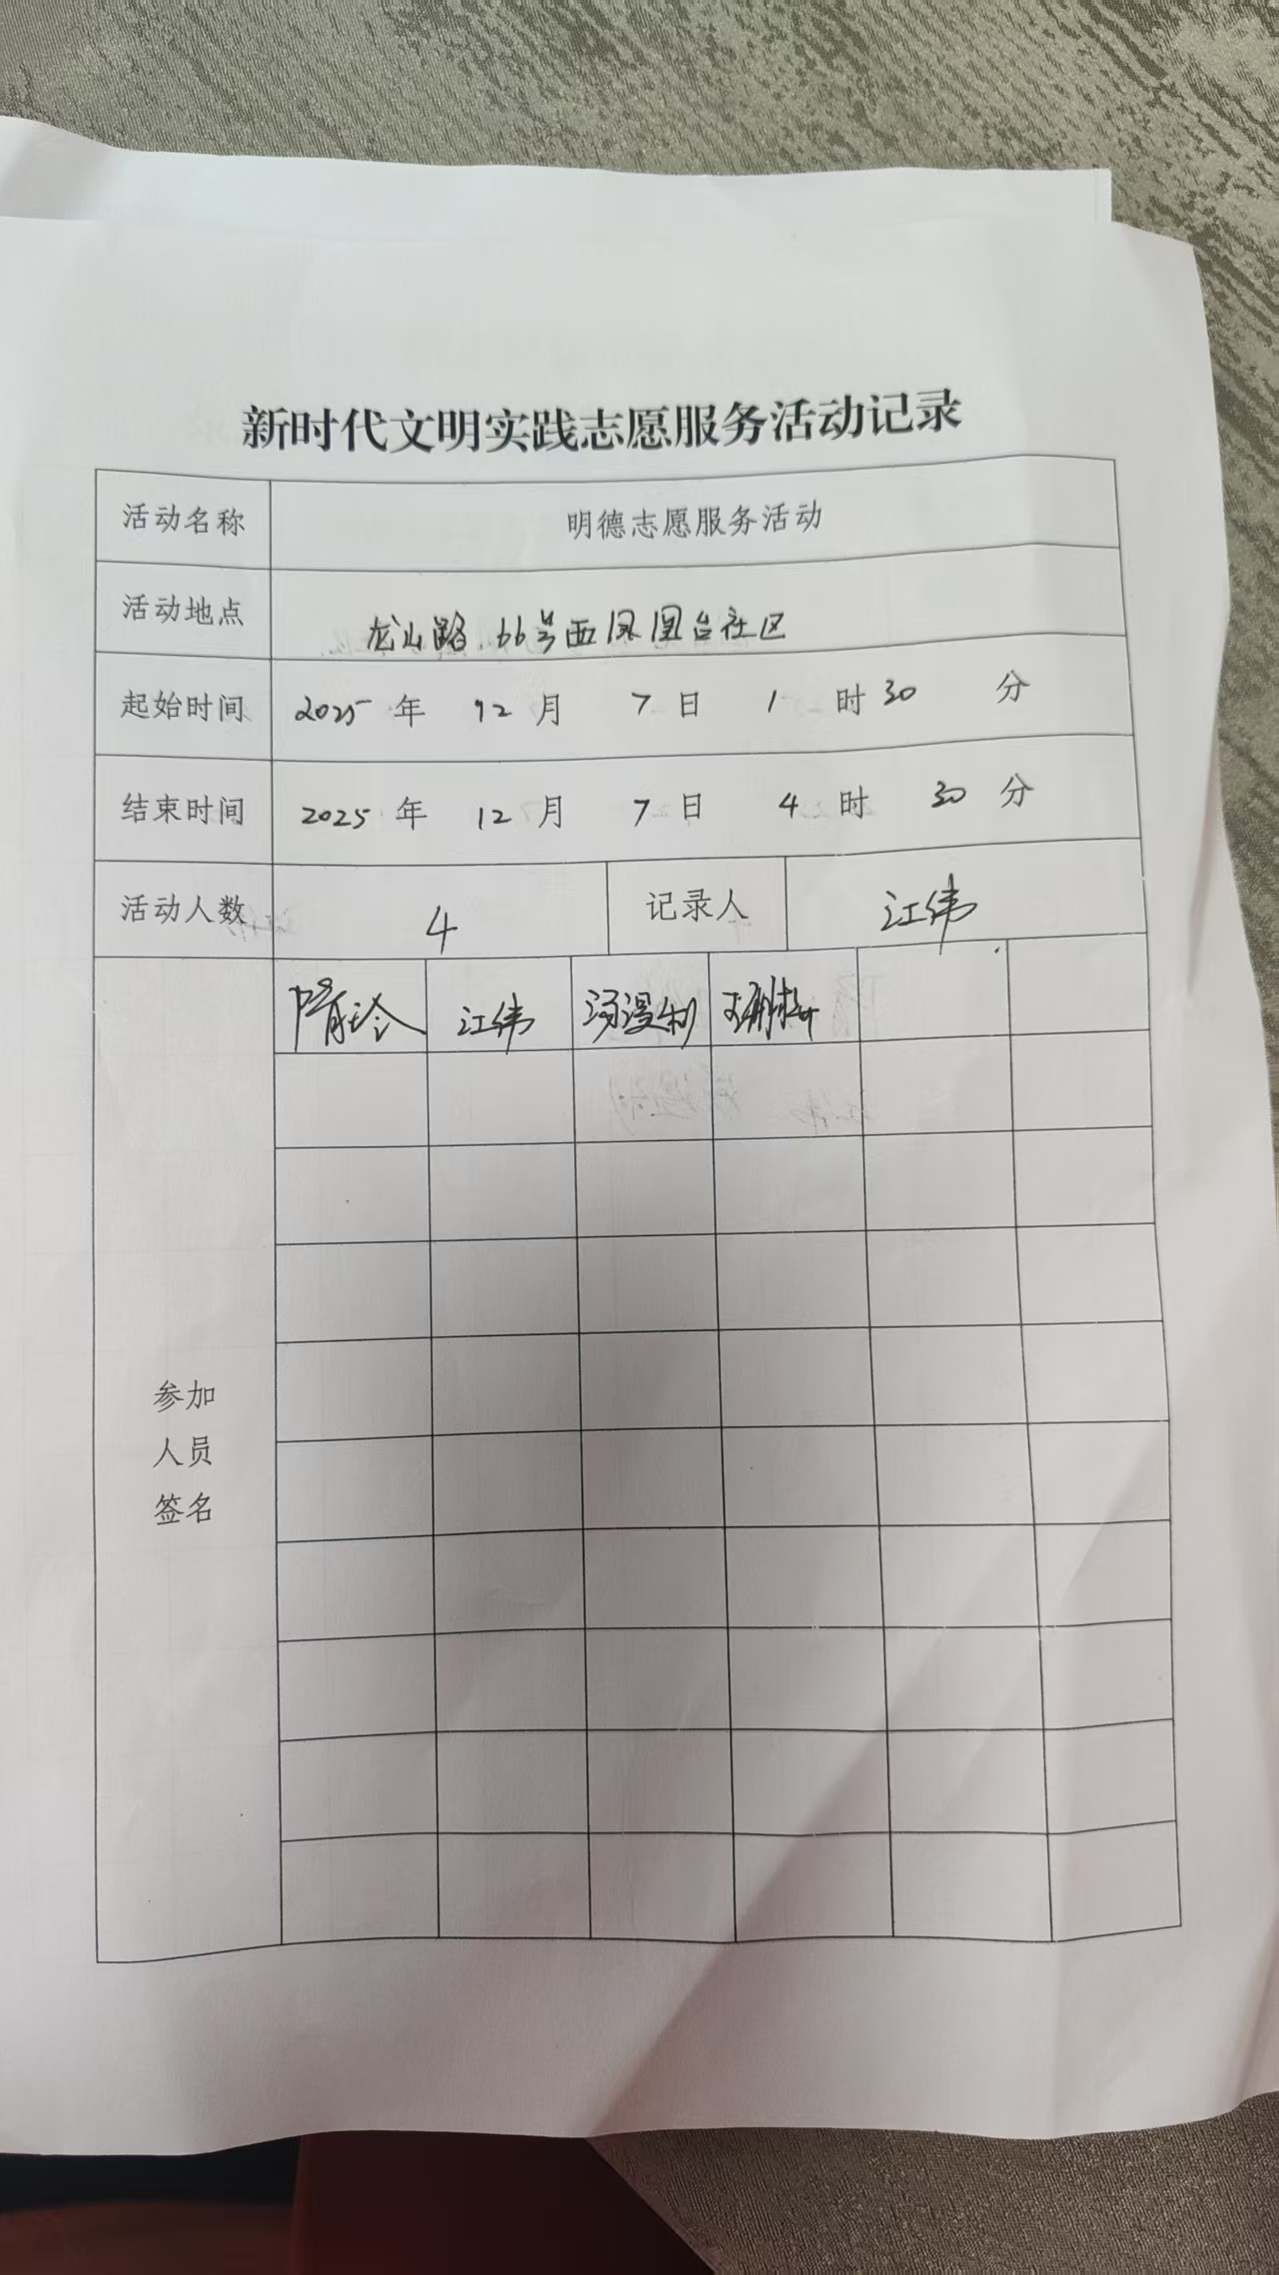 新时代文明实践志愿服务活动记录
活动名称 明德志愿服务活动
活动地点 龙山路.66号西凤凰台社区
起始时间 2025年 12月 7日 1时30分
结束时间 2025年 12月 7日 4时30分
活动人数 4 记录人 江伟
江伟
参加
人员
签名